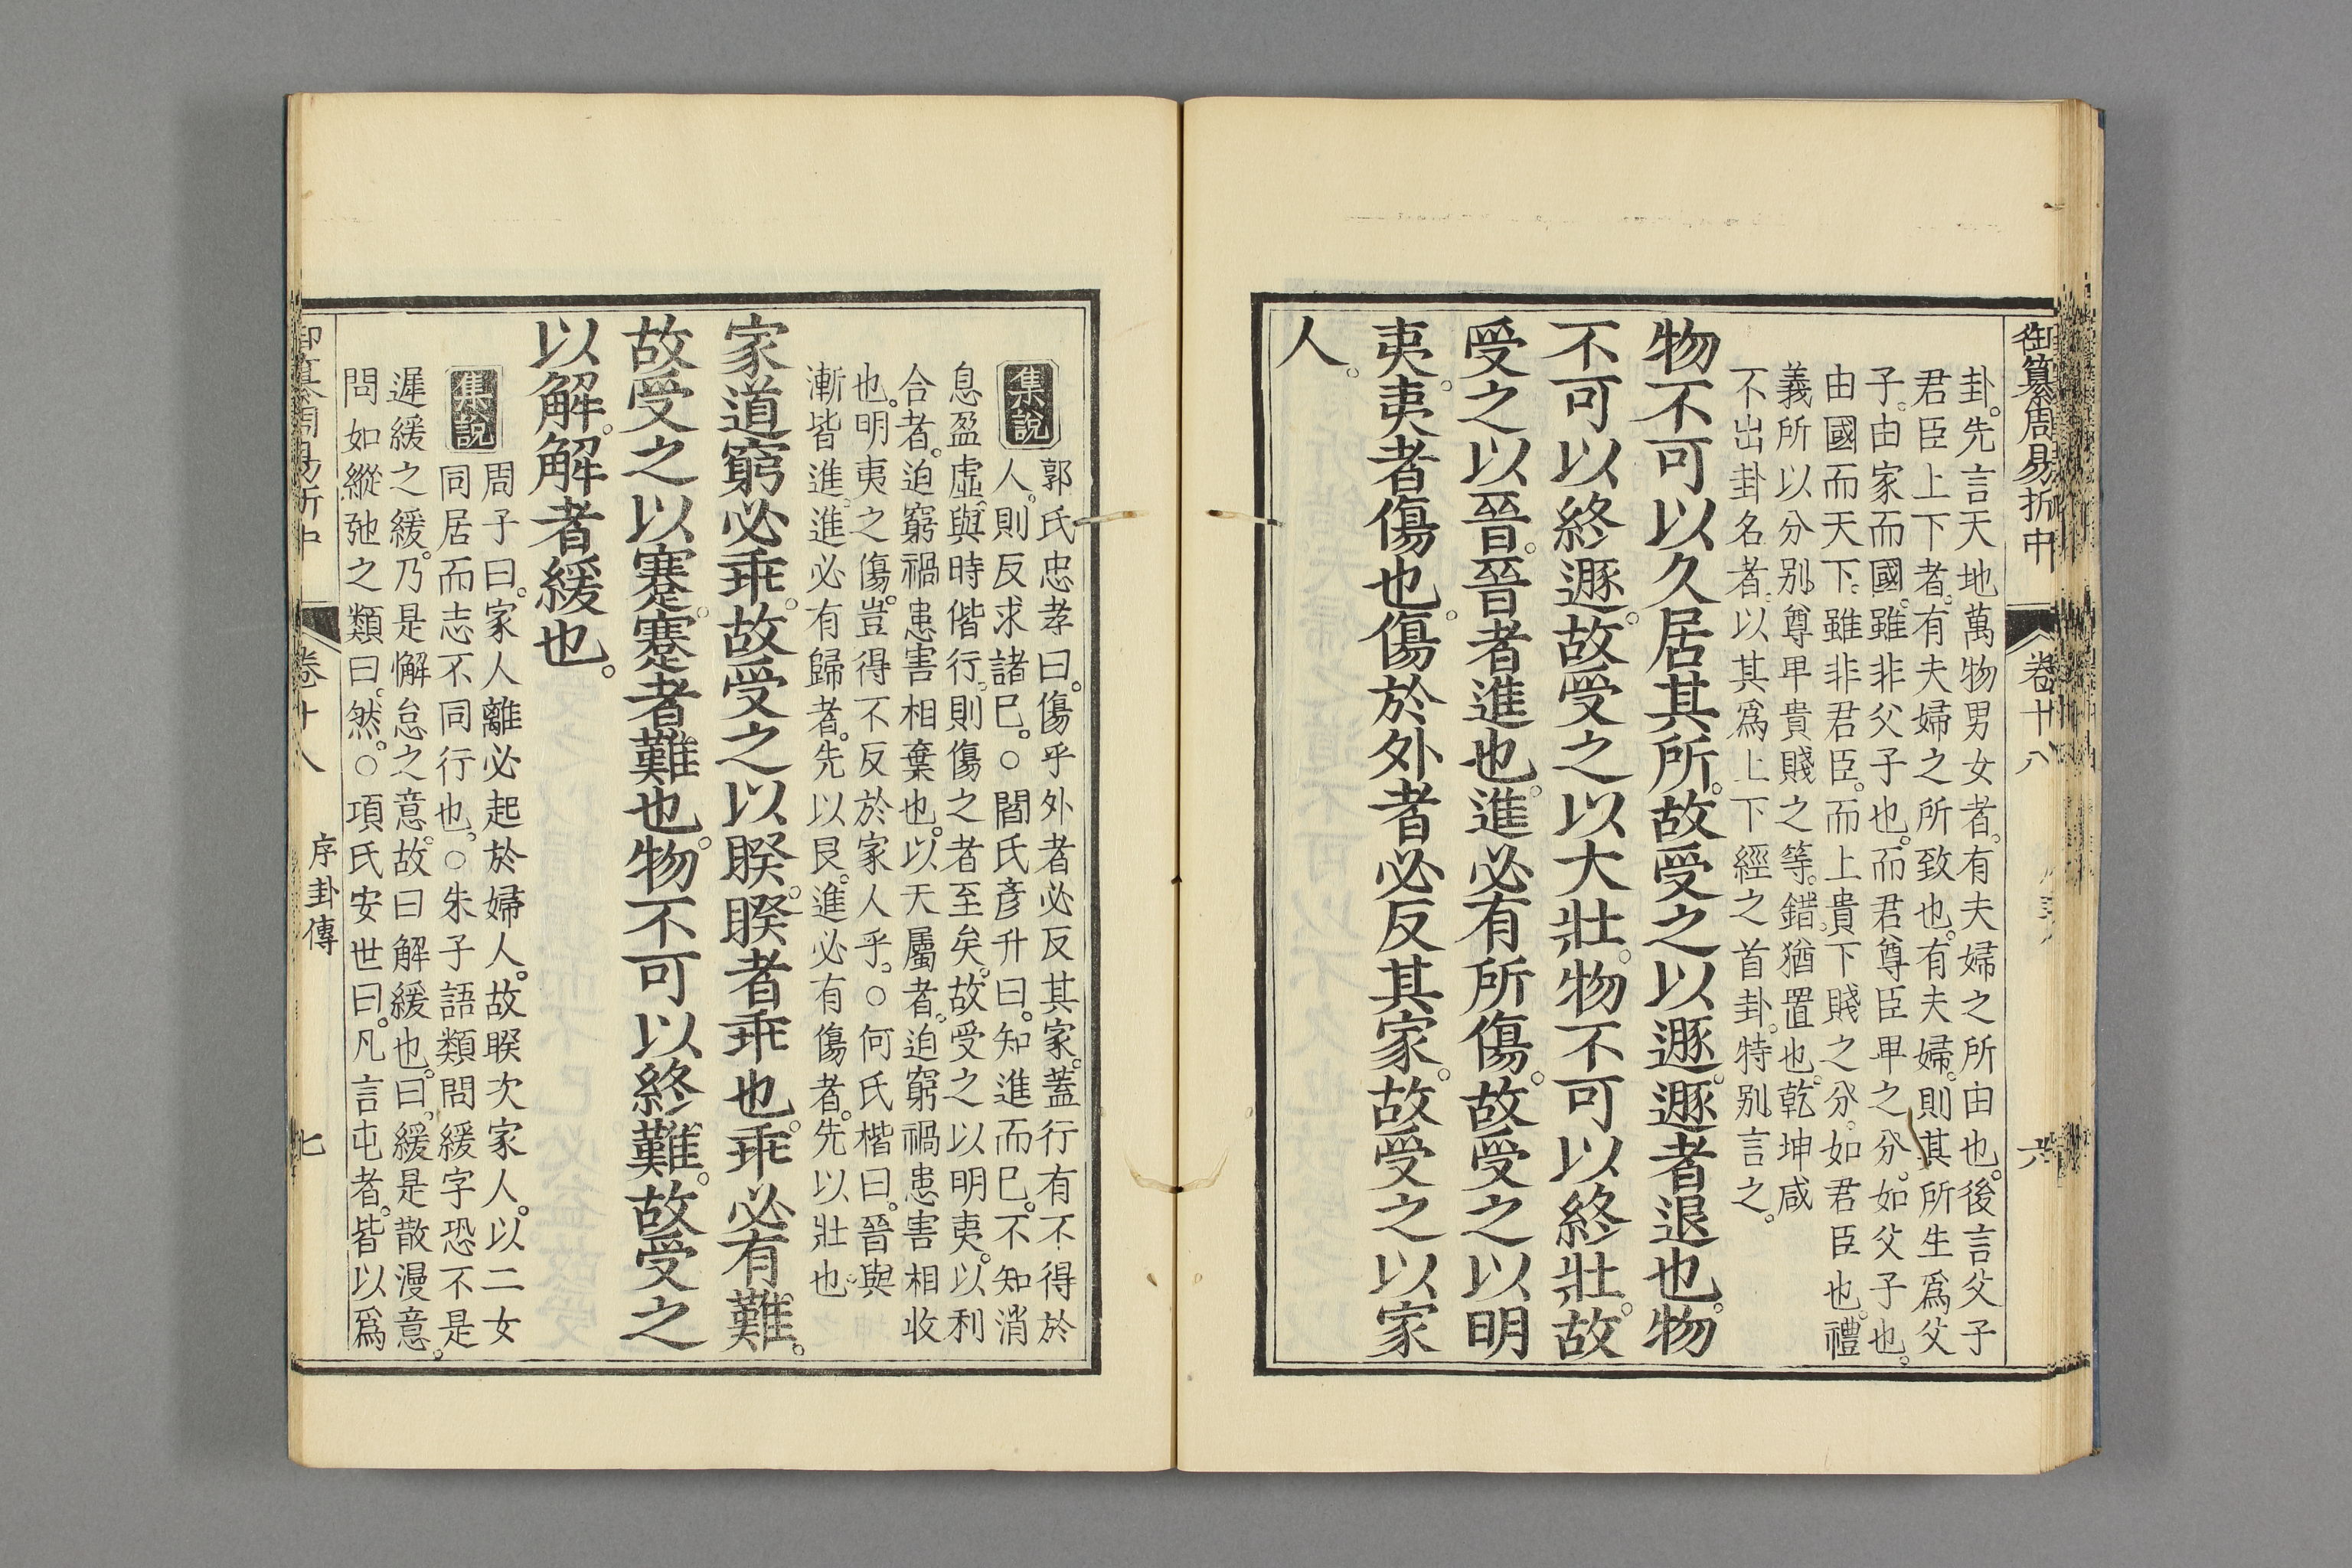 御纂周易折中
卷十八
六
卦。先言天地萬物男女者。有夫婦之所由也。後言父子
君臣上下者。有夫婦之所致也。有夫婦。則其所生爲父
子。由家而國。雖非父子也。而君尊臣卑之分。如父子也。
由國而天下。雖非君臣。而上貴下賤之分。如君臣也。禮
義所以分別尊卑貴賤之等。錯。猶置也。乾坤咸
不出卦名者。以其爲上下經之首卦。特別言之。
物不可以久居其所。故受之以遯。遯者退也。物
不可以終遯。故受之以大壯。物不可以終壯。故
受之以晉。晉者進也。進必有所傷。故受之以明
夷。夷者傷也。傷於外者必反其家。故受之以家
人。
集說
郭氏忠孝曰。傷乎外者必反其家。蓋行有不得於
人。則反求諸已。○閻氏彥升曰。知進而已。不知消
息盈虛。與時偕行。則傷之者至矣。故受之以明夷。以利
合者。迫窮禍患害相棄也。以天屬者。迫窮禍患害相收
也。明夷之傷。豈得不反於家人乎。○何氏楷曰。晉與
漸皆進。進必有歸者。先以艮。進必有傷者。先以壯也。
家道窮必乖。故受之以睽。睽者乖也。乖必有難。
故受之以蹇。蹇者難也。物不可以終難。故受之
以解。解者緩也。
集說
周子曰。家人離必起於婦人。故睽次家人。以二女
同居而志不同行也。○朱子語類問緩字恐不是
遲緩之緩。乃是懈怠之意。故曰解緩也。曰。緩是散漫意。
問如縱弛之類曰。然。○項氏安世曰。凡言屯者。皆以爲
御纂周易折中
卷十八
序卦傳
七